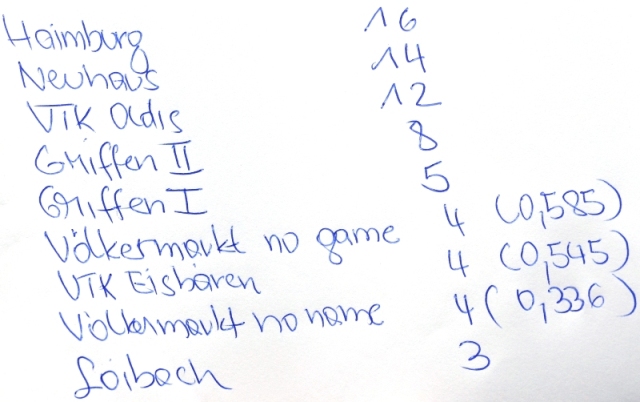 Haimburg 16
Neuhaus 14
VTK Oldis 12
Griffen II 8
Griffen I 5
Völkermarkt no game 4 (0,585)
VTK Eisbären 4 (0,545)
Völkermarkt no name 4 (0,336)
Loibach 3